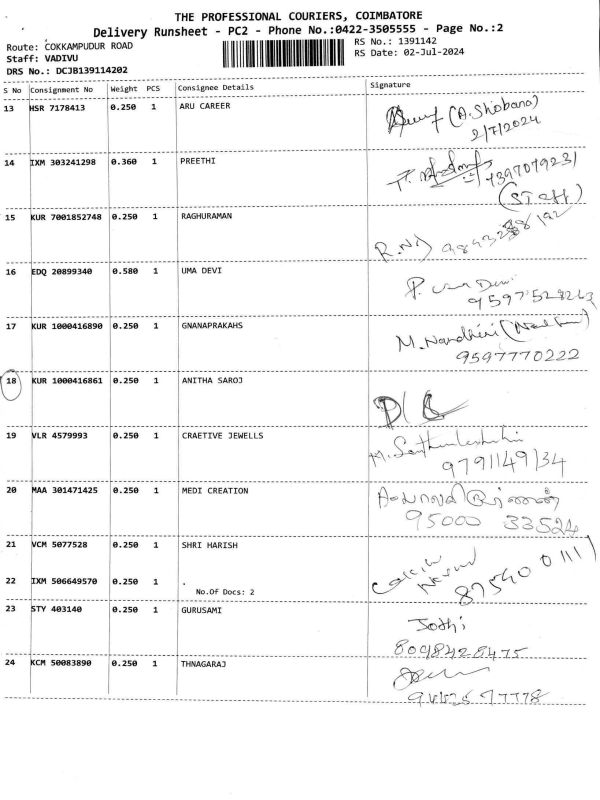 THE PROFESSIONAL COURIERS, COIMBATORE
Delivery Runsheet - PC2 - Phone No.:0422-3505555 - Page No.:2
Route: COKKAMPUDUR ROAD
RS No.: 1391142
Staff: VADIVU
RS Date: 02-Jul-2024
DRS No.: DCJB139114202
S No Consignment No Weight PCS Consignee Details Signature
13 HSR 7178413 0.250 1 ARU CAREER
(A.Shobana)
2/7/2024
14 IXM 303241298 0.360 1 PREETHI
7397079231
(Staff)
15 KUR 7001852748 0.250 1 RAGHURAMAN
16 EDQ 20899340 0.580 1 UMA DEVI
P. Uma Devi
9597528263
17 KUR 1000416890 0.250 1 GNANAPRAKAHS
M. Nandhini
9597770222
18 KUR 1000416861 0.250 1 ANITHA SAROJ
D/L
19 VLR 4579993 0.250 1 CRAETIVE JEWELLS
9791149134
20 MAA 301471425 0.250 1 MEDI CREATION
95000 33524
21 VCM 5077528 0.250 1 SHRI HARISH
87540 01111
22 IXM 506649570 0.250 1 .
No.Of Docs: 2
23 STY 403140 0.250 1 GURUSAMI
Jothi
8098428475
24 KCM 50083890 0.250 1 THNAGARAJ